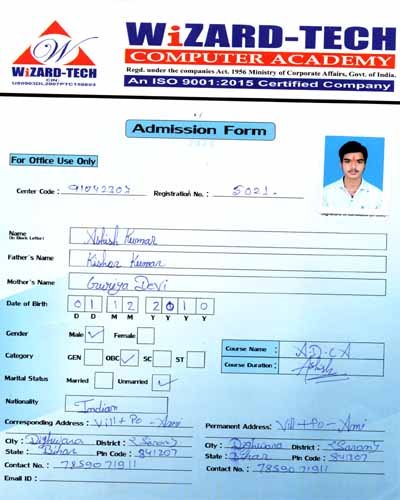 WiZARD-TECH
WiZARD-TECH
COMPUTER ACADEMY
Regd. under the companies Act. 1956 Ministry of Corporate Affairs, Govt. of India.
An ISO 9001:2015 Certified Company
Admission Form
For Office Use Only
Center Code : 91042303 Registration No. : 5021
Name Abhish Kumar
(In Block Letter)
Father's Name Kishor Kumar
Mother's Name Devi
Date of Birth 01 12 2010
D D M M Y Y Y Y
Gender Male ✓ Female
Category GEN OBC ✓ SC ST
Course Name : A.D.C.A
Course Duration :
Marital Status Married Unmarried ✓
Nationality Indian
Corresponding Address : Vill + Po - Ami Permanent Address: Vill + Po - Ami
City : Dighwara District : Saran City : Dighwara District : Saran
State : Bihar Pin Code : 841207 State : Bihar Pin Code : 841207
Contact No. : 7859071911 Contact No. : 7859071911
Email ID :